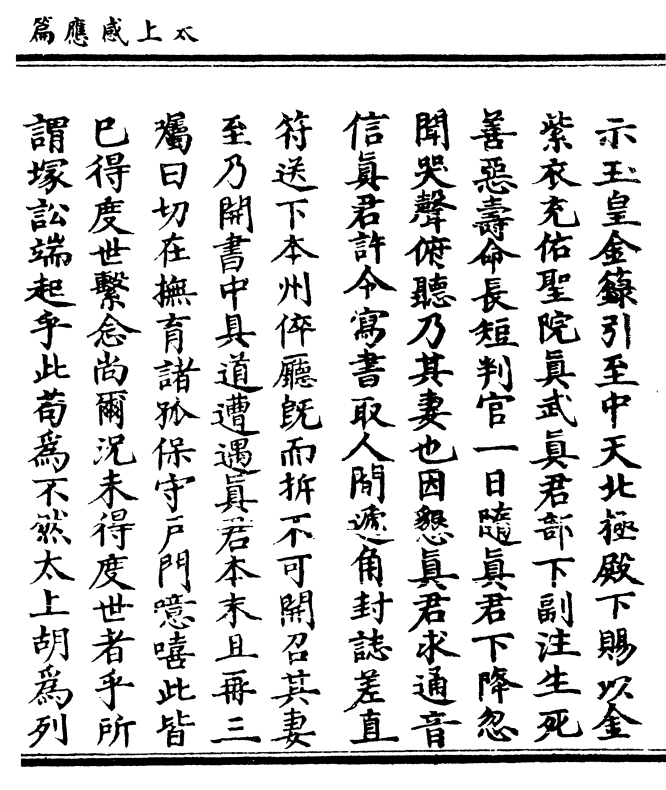 太上感應篇
示玉皇金籙引至中天北極殿下賜以金
紫衣充佑聖院眞武眞君部下副注生死
善惡壽命長短判官一日隨眞君下降忽
聞哭聲俯聽乃其妻也因懇眞君求通音
信眞君許令寫書取人間遞角封誌差直
符送下本州倅廳旣而拆不可開召其妻
至乃開書中具道遭遇眞君本末且再三
囑曰切在撫育諸孤保守戶門噫嘻此皆
巳得度世繫念尚爾況未得度世者乎所
謂塚訟端起乎此苟爲不然太上胡爲列